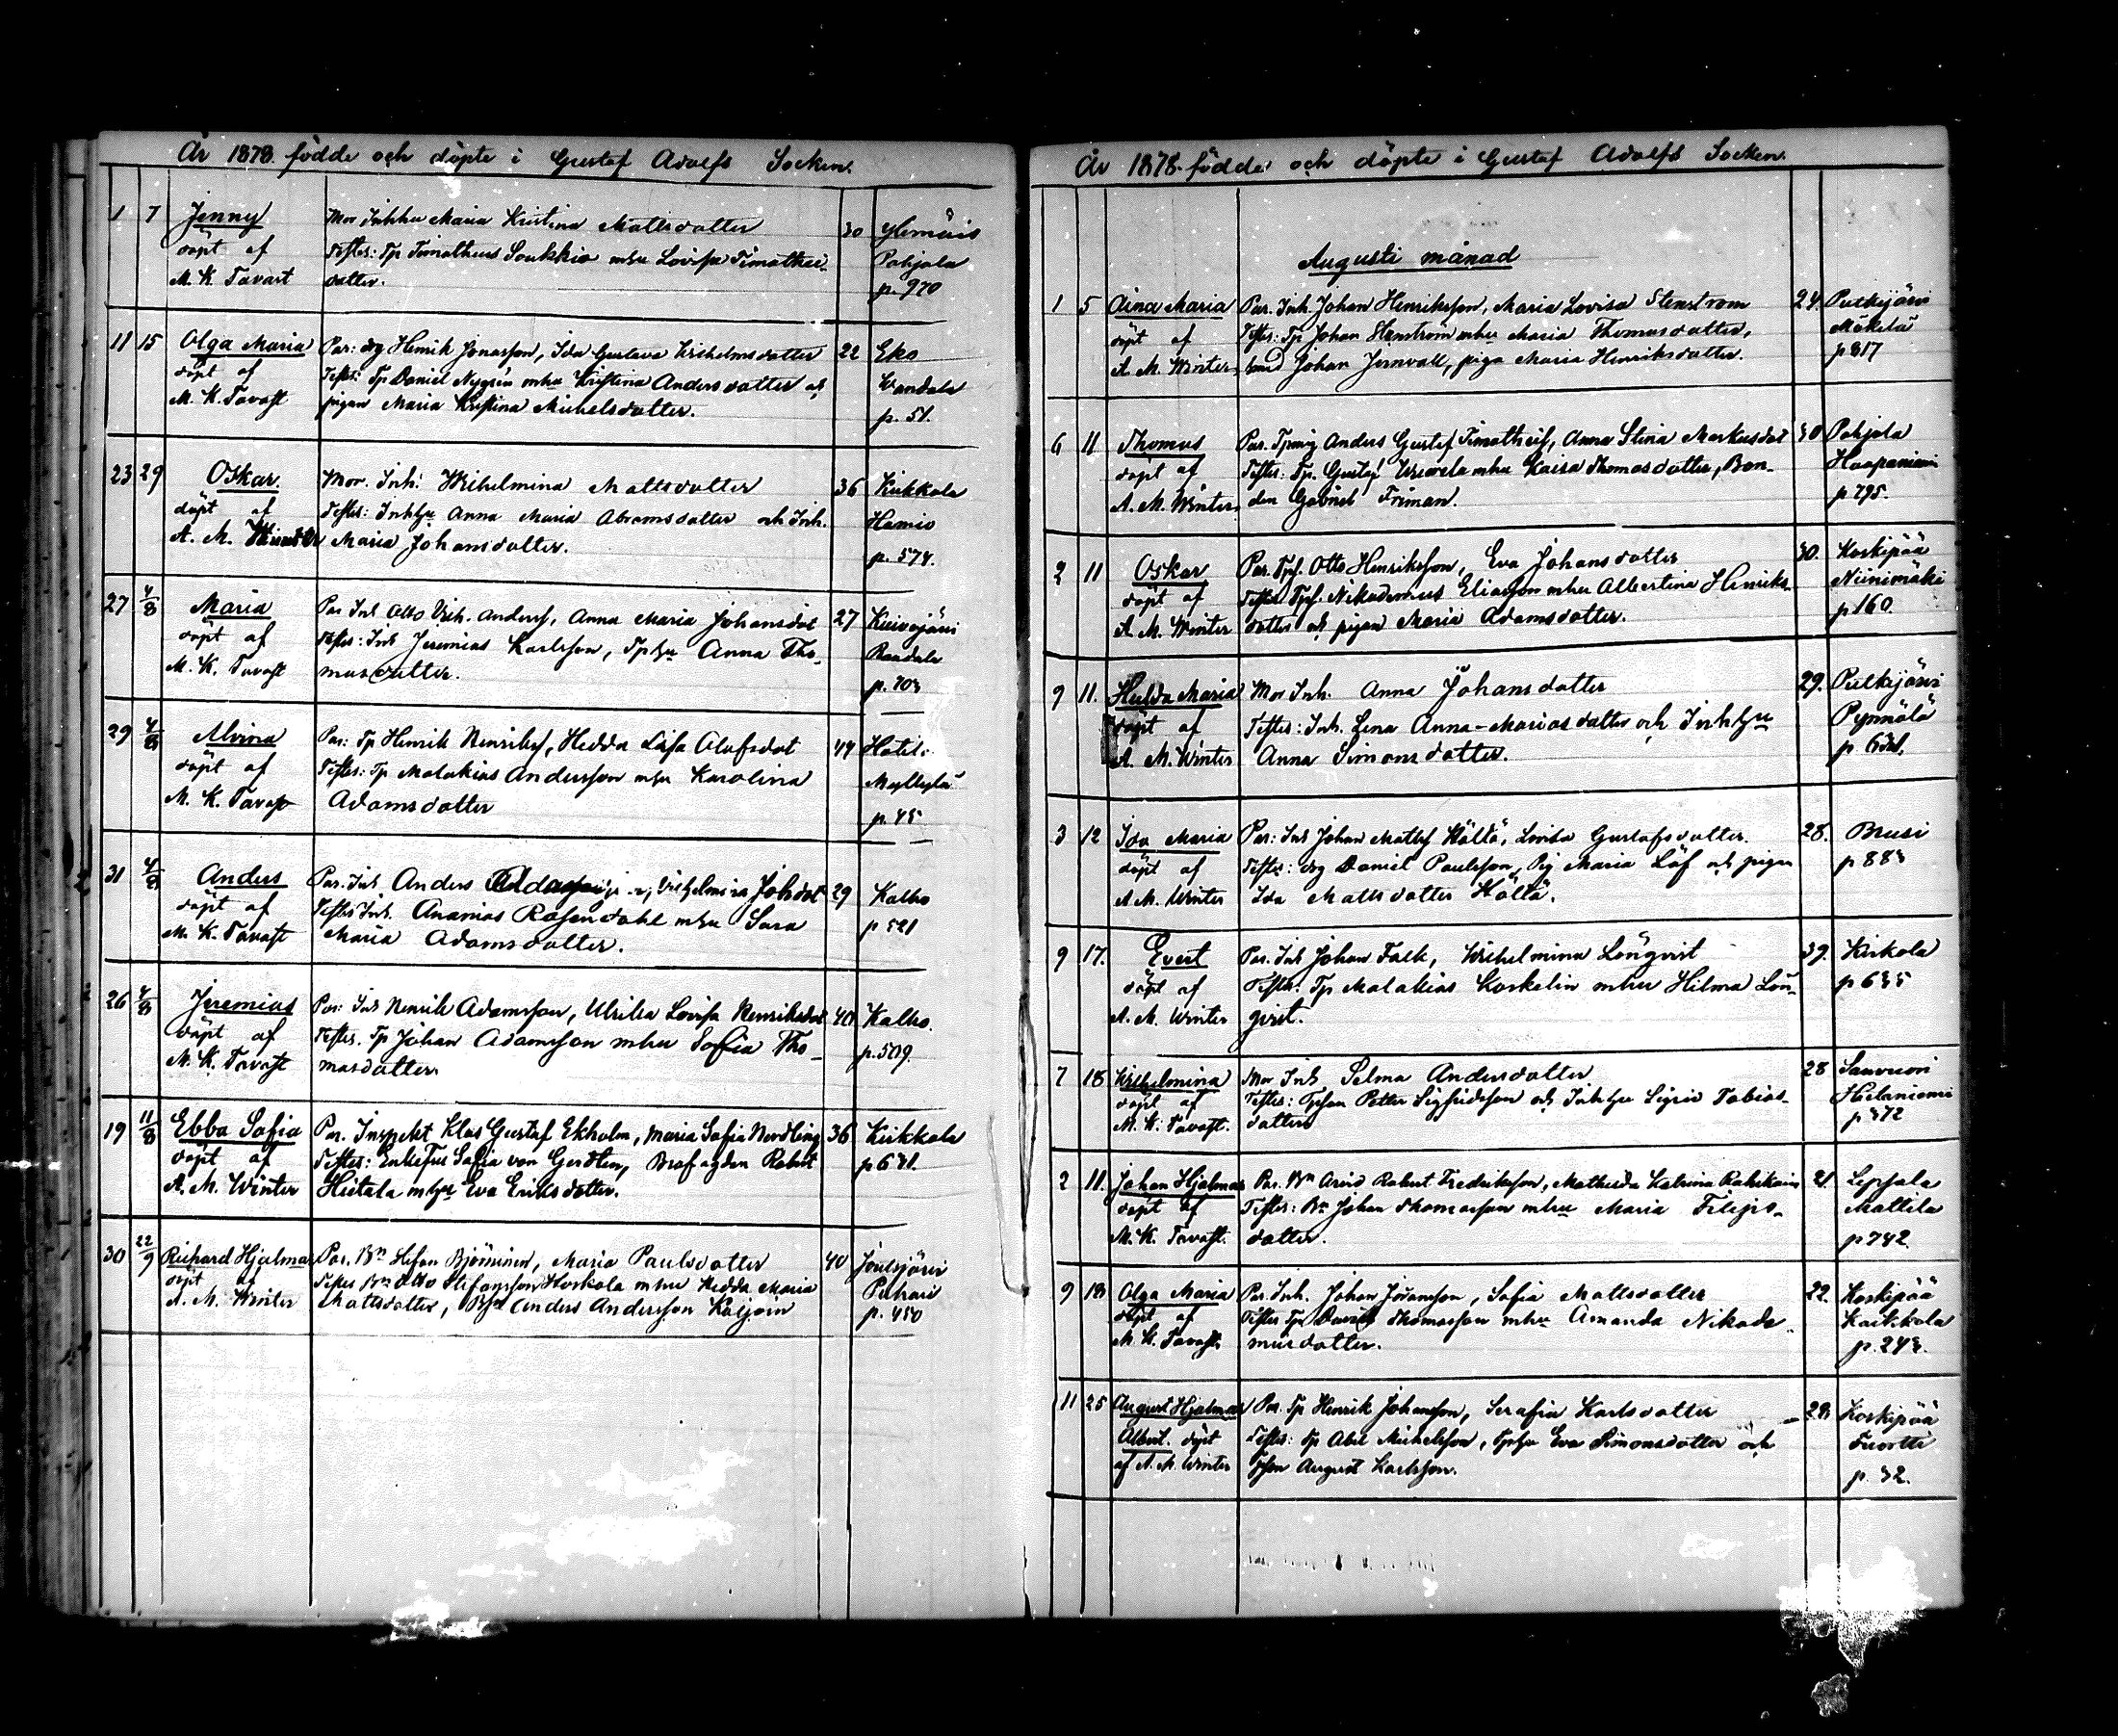 År 1878 födde och döpte i Gustaf Adolfs Socken.
1 7 Jenny Mor Inhhu Maria Kristina Mattsdotter 30
döpt af Testes: Tp Timotheus Soukkio mhu Lovisa Timothei- Pohjola
M. K. Tavast dotter. p. 970
11 15 Olga Maria Par: drg Henrik Jonasson, Ida Gustava Wilhelmsdotter 22 Eko
döpt af Testes: Tp Daniel Nygrén mhu Kristina Andersdotter och Wandala
M. K. Tavast pigan Maria Kristina Michelsdotter. p. 51.
23 29 Oskar. Mor. Inh: Wilhelmina Mattsdotter 36 Kirkkola
döpt af Testes: Inhhu Anna Maria Abramsdotter och Inh. Hemio
A. M. Maria Johansdotter. p. 574.
27 4/8 Maria Par Inh Otto Wilh. Anderss, Anna Maria Johansdot 27 Kuivajärvi
döpt af Testes: Inh Jeremias Karlsson, Tphu Anna Tho-
M. K. Tavast masdotter.
29 4/8 Alvina Par: Tp Henrik Henrikss, Hedda Lisa Olofsdot 44
döpt af Testes: Tp Malakias Andersson mhu Karolina Myllylä
M. K. Tavast Adamsdotter p. 45
31 4/8 Anders Par. Inh. Anders Wilhelmina Johsdot 29 Kalho
döpt af Testes Inh. Ananias Rosendahl mhu Sara p 521
M. K. Tavast Maria Adamsdotter.
26 4/8 Jeremias Par: Inh Henrik Adamsson, Ulrika Lovisa Henriksdot 40 Kalho.
döpt af Testes. Tp Johan Adamsson mhu Sofia Tho- p. 509.
M. K. Tavast masdotter
19 11/8 Ebba Sofia Par. Inspekt Klas Gustaf Ekholm, Maria Sofia Nordling 36 Kirkkola
döpt af Testes: Enkefru Sofia von Gerdten, Robert p 631.
A. M. Winter Hietala mhu Eva Eriksdotter.
30 22/9 Richard Hjalmar Par. Bn Stefan Björninen, Maria Paulsdotter 40 Joutsjärvi
döpt af Testes Bn Otto Stefansson Horkola mhu Hedda Maria Puhari
A. M. Winter Mattsdotter, Anders Andersson p. 450
År 1878 födde och döpte i Gustaf Adolfs Socken.
Augusti månad
1 5 Aina Maria Par. Inh. Johan Henriksson, Maria Lovisa Stenstrom 24 Putkijärvi
döpt af Testes: Tp Johan Stenström mhu Maria Thomasdotter, Mäkelä
A. M. Winter Johan Jernvall, piga Maria Henriksdotter. p 817
6 11 Thomas Par. Tpmg Anders Gustaf Timotheif, Anna Stina Markusdot 30 Pohjola
döpt af Testes: Tp. Gustaf mhu Kaisa Thomasdotter, Bon- Haapaniemi
A. M. Winter den Gabriel Friman. p 795.
2 11 Oskar Par. Tps. Otto Henriksson, Eva Johansdotter 30. Koskipää
döpt af Testes Tps. Nikodemus Eliasson mhu Albertina Henriks- Niinimäki
A. M. Winter dotter och pigan Maria Adamsdotter. p 160
9 11. Hulda Maria Mor Inh. Anna Johansdotter 29. Putkijärvi
döpt af Testes: Inh. Lena Anna-Mariasdotter och Inhhu Pynnölä
A. M. Winter Anna Simonsdotter.
3 12 Ida Maria Par: Inh Johan Mattss Höltä, Lovisa Gustafsdotter 28. Brusi
döpt af Testes: drg Daniel Paulsson, Pig Maria Löf och pigan p 883
A. M. Winter Ida Mattsdotter Höltä.
9 17. Evert Par. Inh Johan Falk, Wilhelmina Lönqvist 39. Kirkola
döpt af Testes: Tp Malakias Koskelin mhu Hilma Lön- p 635
A. M. Winter qvist.
7 18 Wilhelmina Mor Inh Selma Andersdotter 28
döpt af Testes: Tpson Petter Sigfridsson och Inhhu Sigrid Tobias- Hietaniemi
M. K. Tavast. dotter p 372
2 11. Johan Hjalmar Par. Bn Arvid Robert Fredriksson, Mathilda Katrina 21 Lepsala
döpt af Testes: Bn Johan Thomasson mhu Maria Filips- Mattila
M. K. Tavast. dotter. p 742
9 18 Olga Maria Par. Inh. Johan Johansson, Sofia Mattsdotter 22. Koskipää
döpt af Testes Tps David Thomasson mhu Amanda Nikode- Kaikkola
M. K. Tavast. musdotter. p. 243.
11 25 August Hjalmar Par. Tp Henrik Johansson, Serafia Karlsdotter 28 Koskipää
Albert. döpt Testes: Tp Abel Michelsson, Tphu Eva Simonsdotter och Tuortti
af A. M. Winter Tpson August Karlsson. p. 32.